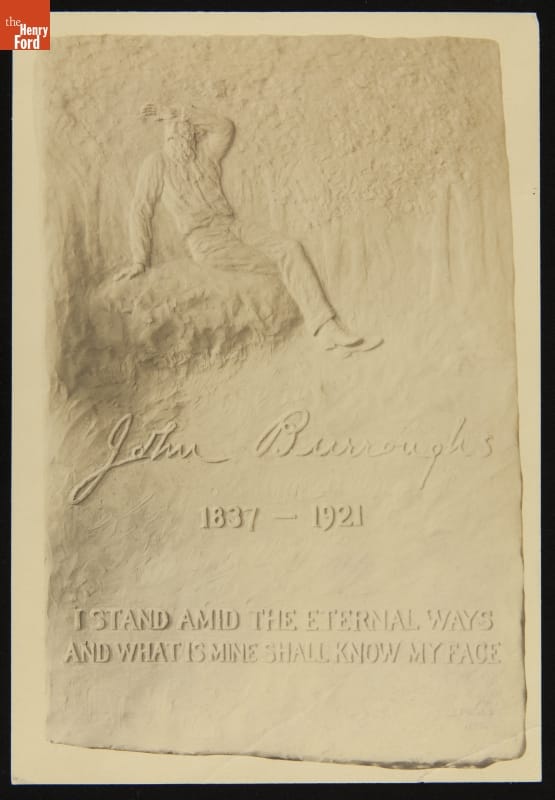 the
Henry
Ford
John Burroughs
1837 — 1921
I STAND AMID THE ETERNAL WAYS
AND WHAT IS MINE SHALL KNOW MY FACE